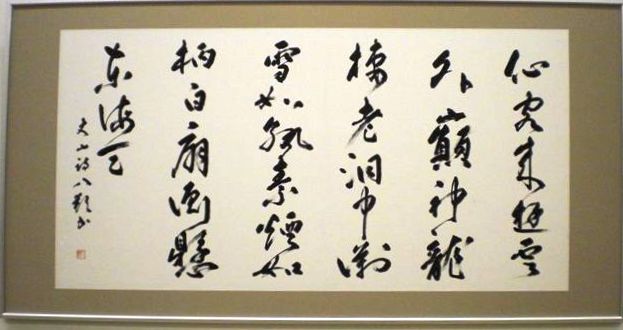 仙客来遊雲
外巓神龍
棲老洞中淵
雪如紈素煙如
柄白扇倒懸
東海天
丈山詩八